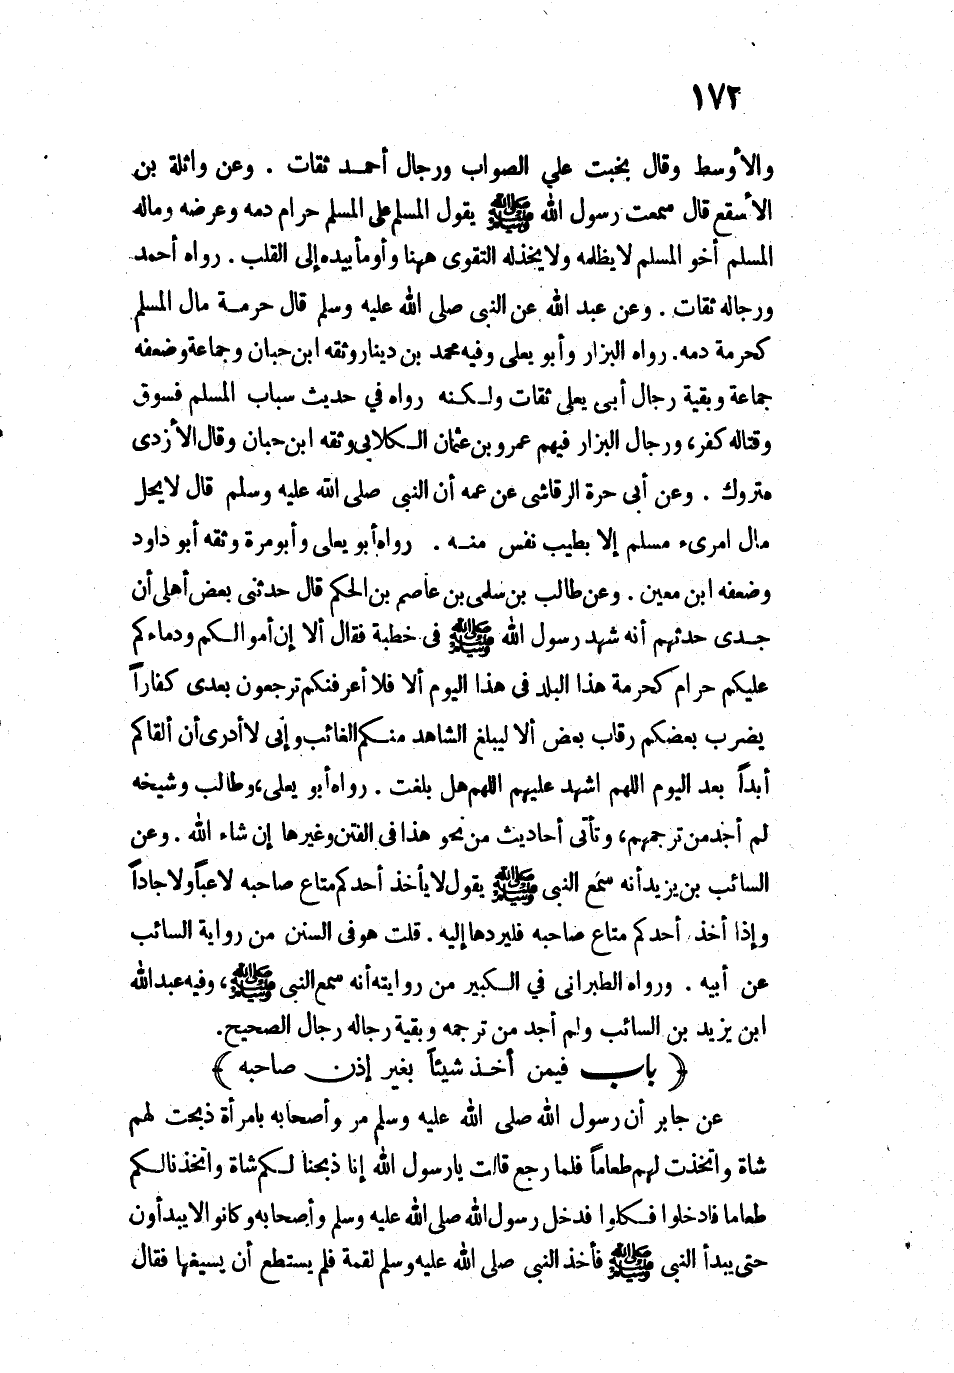 ١٧٢
والأوسط وقال بخبت علي الصواب ورجال أحمد ثقات . وعن واثلة بن
الأسقع قال سمعت رسول الله ﷺ يقول المسلم على المسلم حرام دمه وعرضه وماله
المسلم أخو المسلم لا يظلمه ولا يخذله التقوى ههنا وأومأ بيده إلى القلب . رواه أحمد
ورجاله ثقات . وعن عبد الله عن النبى صلى الله عليه وسلم قال حرمة مال المسلم
كحرمة دمه . رواه البزار وأبو يعلى وفيه محمد بن دينار وثقه ابن حبان وجماعة وضعفه
جماعة وبقية رجال أبى يعلى ثقات ولكنه رواه في حديث سباب المسلم فسوق
وقتاله كفر، ورجال البزار فيهم عمرو بن عثمان الكلابى وثقه ابن حبان وقال الأزدى
متروك . وعن أبى حرة الرقاشى عن عمه أن النبى صلى الله عليه وسلم قال لا يحل
مال امرىء مسلم إلا بطيب نفس منه . رواه أبو يعلى وأبو مرة وثقه أبو داود
وضعفه ابن معين . وعن طالب بن سلمى بن عاصم بن الحكم قال حدثنى بعض أهلى أن
جدى حدثهم أنه شهد رسول الله ﷺ فى خطبة فقال ألا إن أموالكم ودماءكم
عليكم حرام كحرمة هذا البلد فى هذا اليوم ألا فلا أعرفنكم ترجعون بعدى كفاراً
يضرب بعضكم رقاب بعض ألا ليبلغ الشاهد منكم الغائب وإنى لا أدرى أن ألقاكم
أبداً بعد اليوم اللهم اشهد عليهم اللهم هل بلغت . رواه أبو يعلى، وطالب وشيخه
لم أجد من ترجمهم، وتأتى أحاديث من نحو هذا فى الفتن وغيرها إن شاء الله . وعن
السائب بن يزيد أنه سمع النبى ﷺ يقول لا يأخذ أحدكم متاع صاحبه لاعباً ولا جاداً
وإذا أخذ أحدكم متاع صاحبه فليردها إليه . قلت هو فى السنن من رواية السائب
عن أبيه . ورواه الطبرانى في الكبير من روايته أنه سمع النبى ﷺ، وفيه عبد الله
ابن يزيد بن السائب ولم أجد من ترجمه وبقية رجاله رجال الصحيح.
﴿ باب فيمن أخذ شيئاً بغير إذن صاحبه ﴾
عن جابر أن رسول الله صلى الله عليه وسلم مر وأصحابه بامرأة ذبحت لهم
شاة واتخذت لهم طعاماً فلما رجع قالت يارسول الله إنا ذبحنا لكم شاة واتخذنا لكم
طعاما فادخلوا فكلوا فدخل رسول الله صلى الله عليه وسلم وأصحابه وكانوا لا يبدأون
حتى يبدأ النبى ﷺ فأخذ النبى صلى الله عليه وسلم لقمة فلم يستطع أن يسيغها فقال